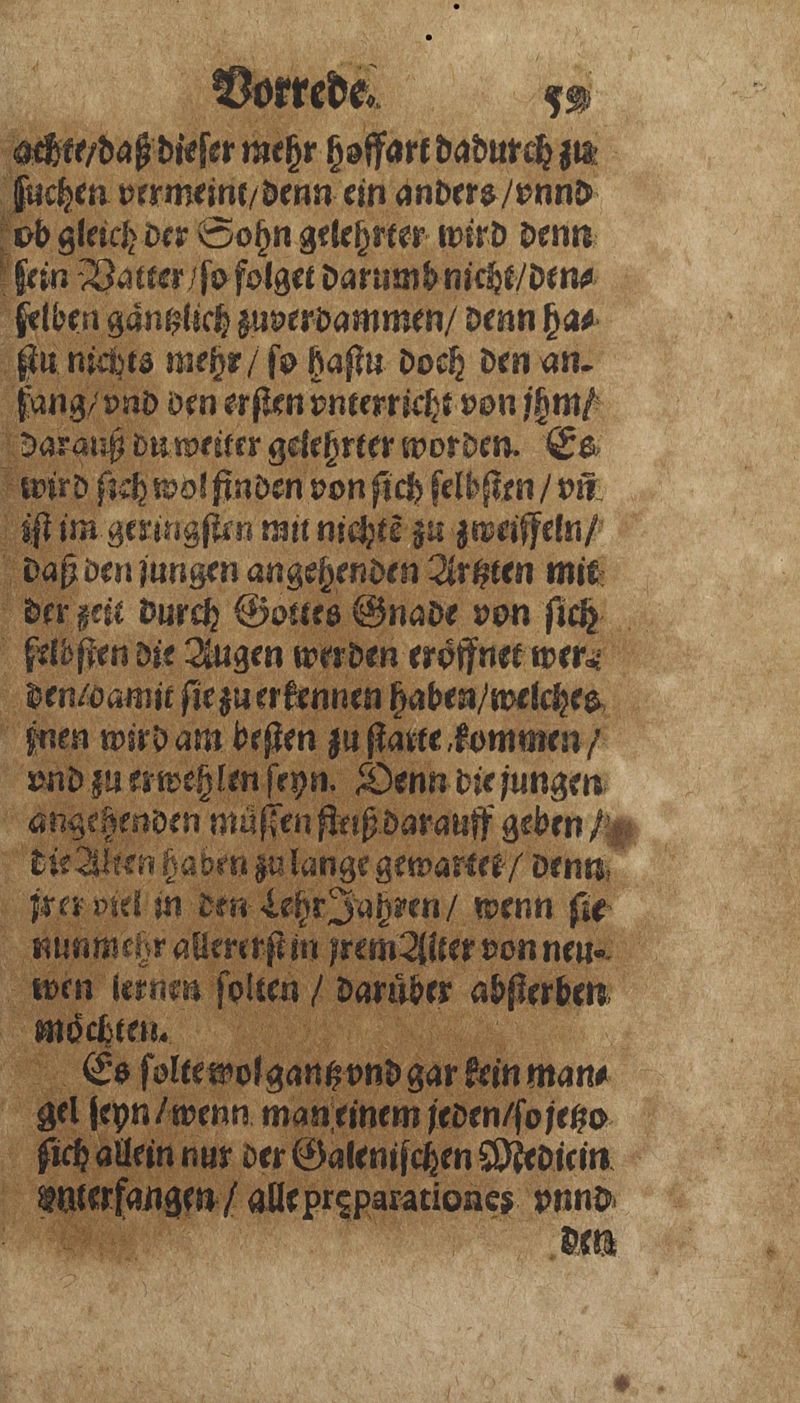 Vorrede. 59
achte/daß dieſer mehr hoffart dadurch zu
ſuchen vermeint/denn ein anders/vnnd
ob gleich der Sohn gelehrter wird denn
ſein Vatter/ſo folget darumb nicht/den⸗
ſelben gäntzlich zuverdammen/ denn ha⸗
ſtu nichts mehr/ ſo haſtu doch den an-
fang/vnd den erſten vnterricht von jhm/
darauß du weiter gelehrter worden. Es
wird ſich wol finden von ſich ſelbſten/ vn̄
iſt im geringſten mit nichtē zu zweiffeln/
daß den jungen angehenden Artzten mit
der zeit durch Gottes Gnade von ſich
ſelbſten die Augen werden eröffnet wer⸗
den/damit ſie zu erkennen haben/welches
jnen wird am beſten zu ſtatte kommen/
vnd zu erwehlen ſeyn. Denn die jungen
angehenden müſſen fleiß darauff geben/
die Alten haben zu lange gewartet/ denn
jrer viel in den LehrJahren/ wenn ſie
nunmehr allererſt in jrem Alter von neu⸗
wen lernen ſolten / darüber abſterben
möchten.
Es ſolte wol gantz vnd gar kein man⸗
gel ſeyn/wenn man einem jeden/ſo jetzo
ſich allein nur der Galeniſchen Medicin
vnterfangen/ alle pręparationes vnnd
den